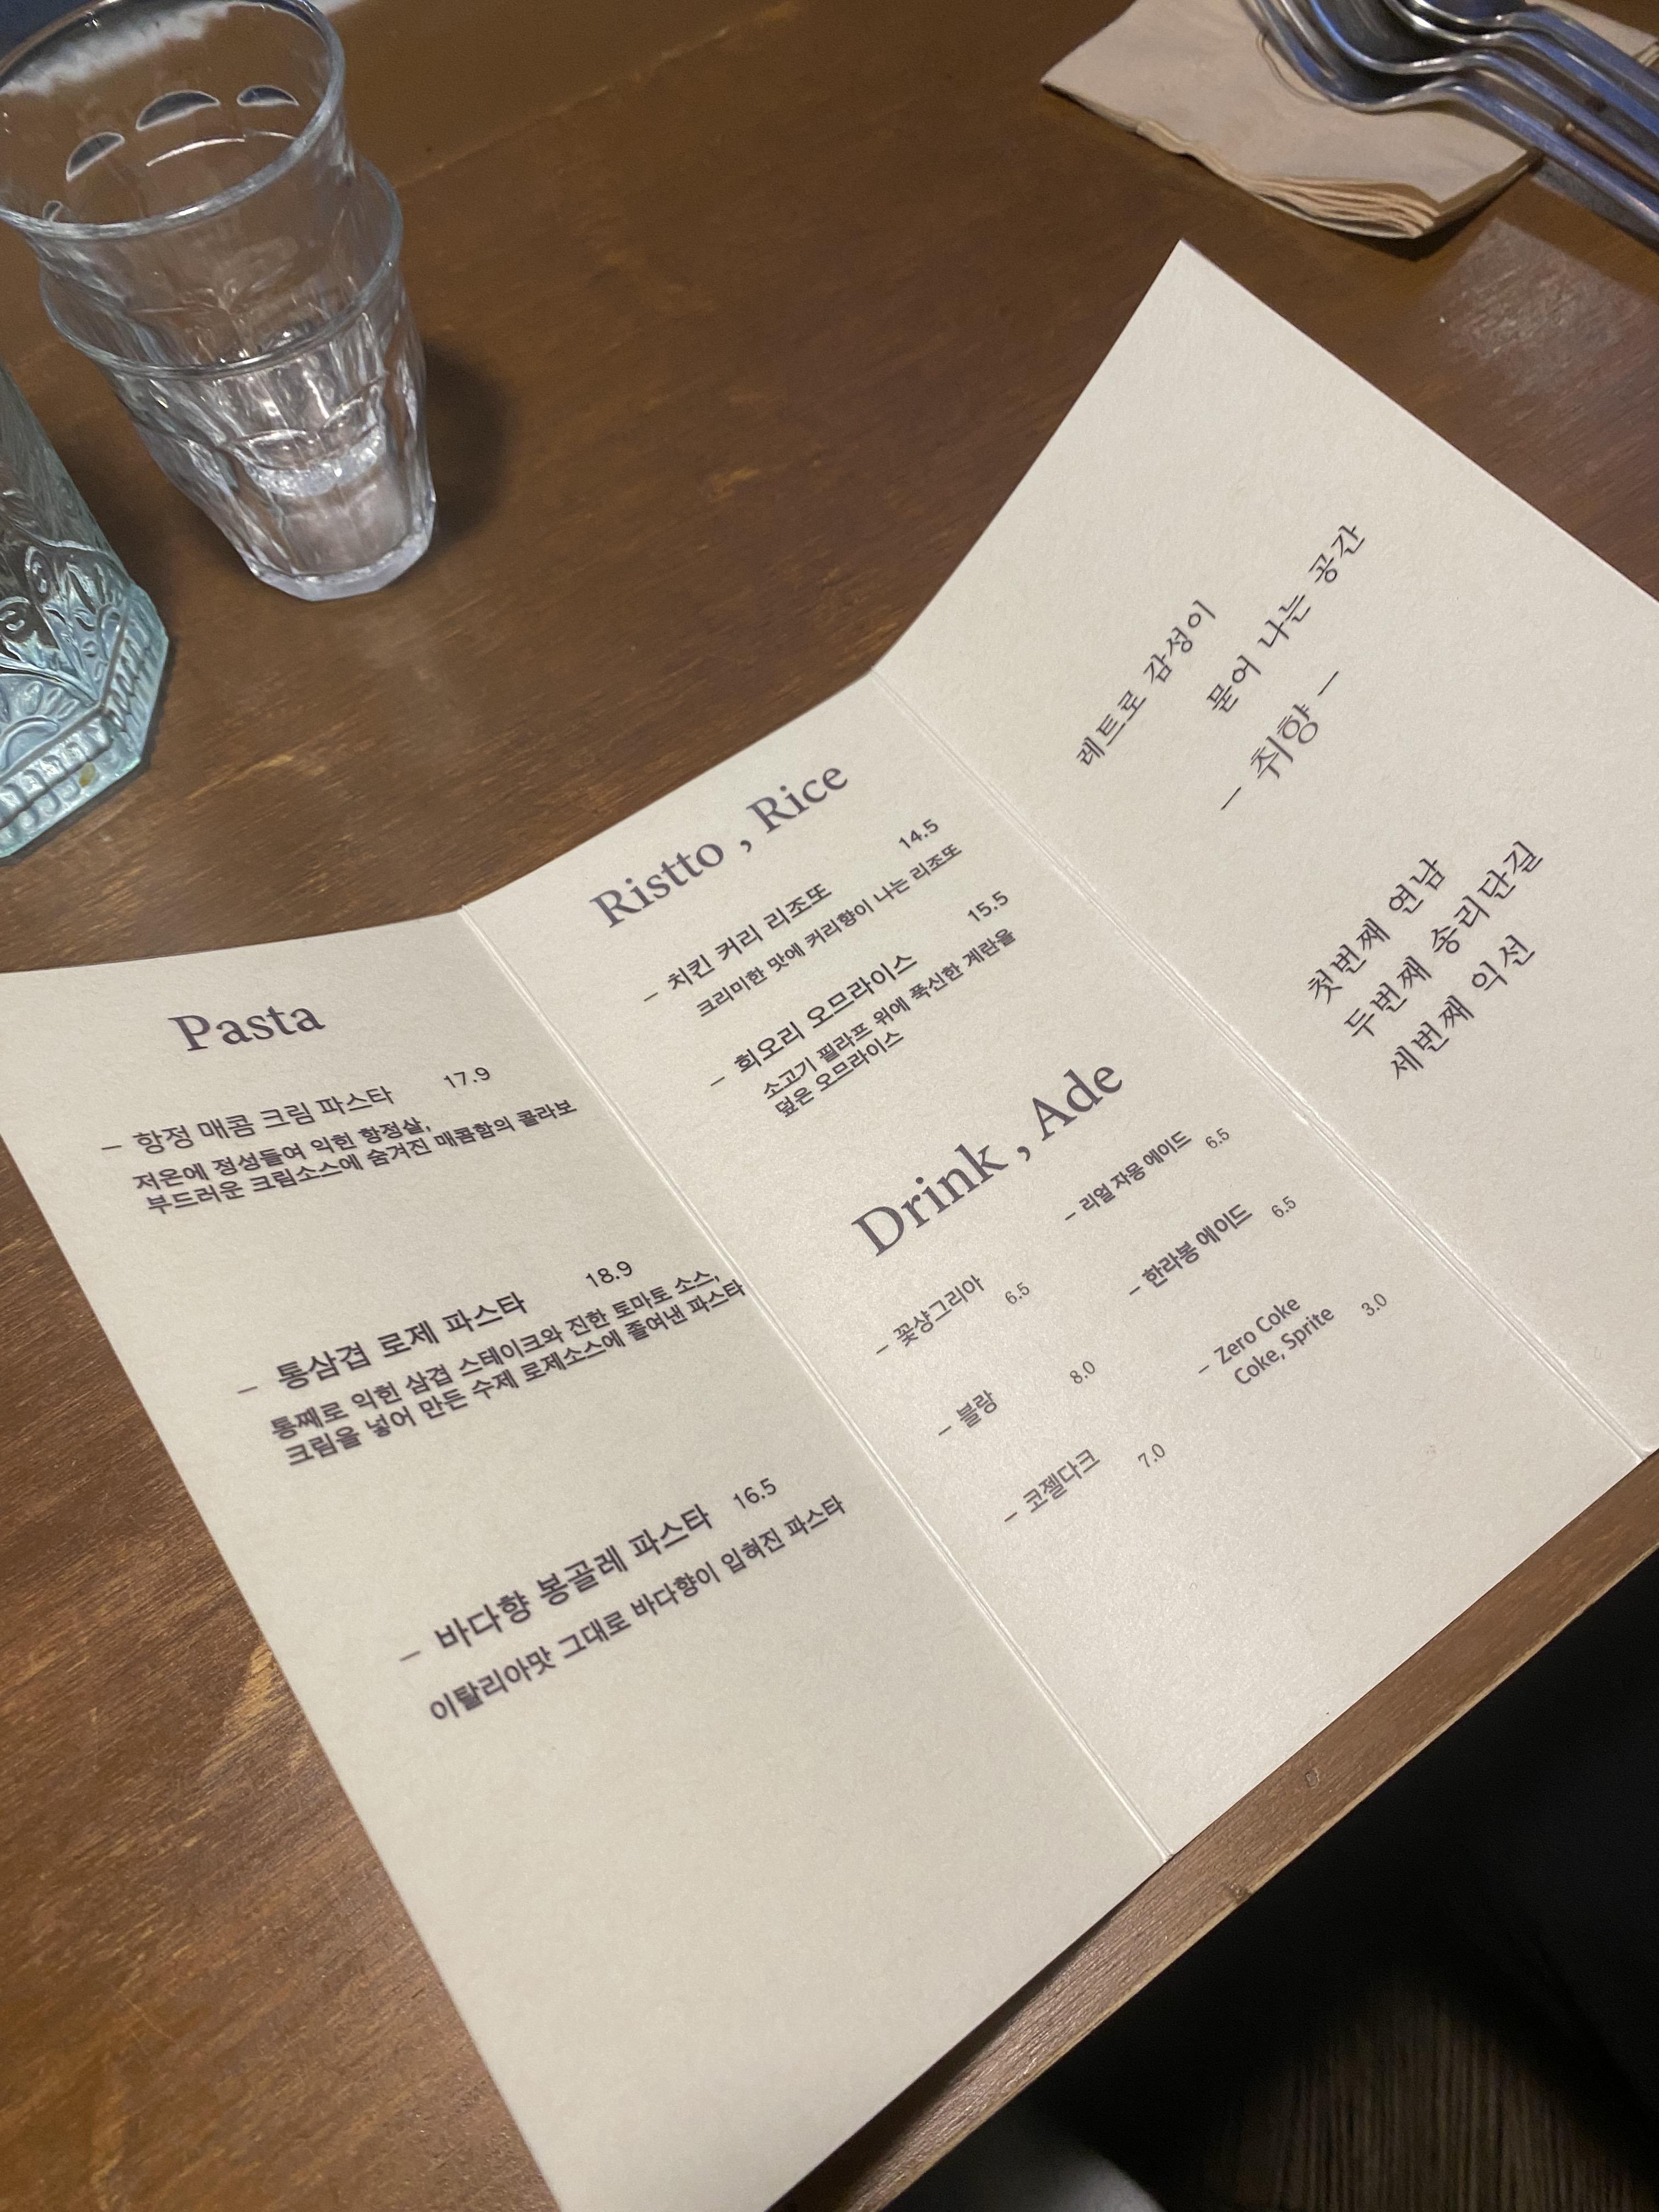 Pasta
– 항정 매콤 크림 파스타 17.9
저온에 정성들여 익힌 항정살,
부드러운 크림소스에 숨겨진 매콤함의 콜라보
– 통삼겹 로제 파스타 18.9
통째로 익힌 삼겹 스테이크와 진한 토마토 소스,
크림을 넣어 만든 수제 로제소스에 졸여낸 파스타
– 바다향 봉골레 파스타 16.5
이탈리아맛 그대로 바다향이 입혀진 파스타
Ristto , Rice
– 치킨 커리 리조또 14.5
크리미한 맛에 커리향이 나는 리조또
– 회오리 오므라이스 15.5
소고기 필라프 위에 푹신한 계란을
덮은 오므라이스
Drink , Ade
– 꽃샹그리아 6.5
– 블랑 8.0
– 코젤다크 7.0
– 리얼 자몽 에이드 6.5
– 한라봉 에이드 6.5
– Zero Coke
Coke, Sprite 3.0
레트로 감성이
묻어 나는 공간
– 취향 –
첫번째 연남
두번째 송리단길
세번째 익선